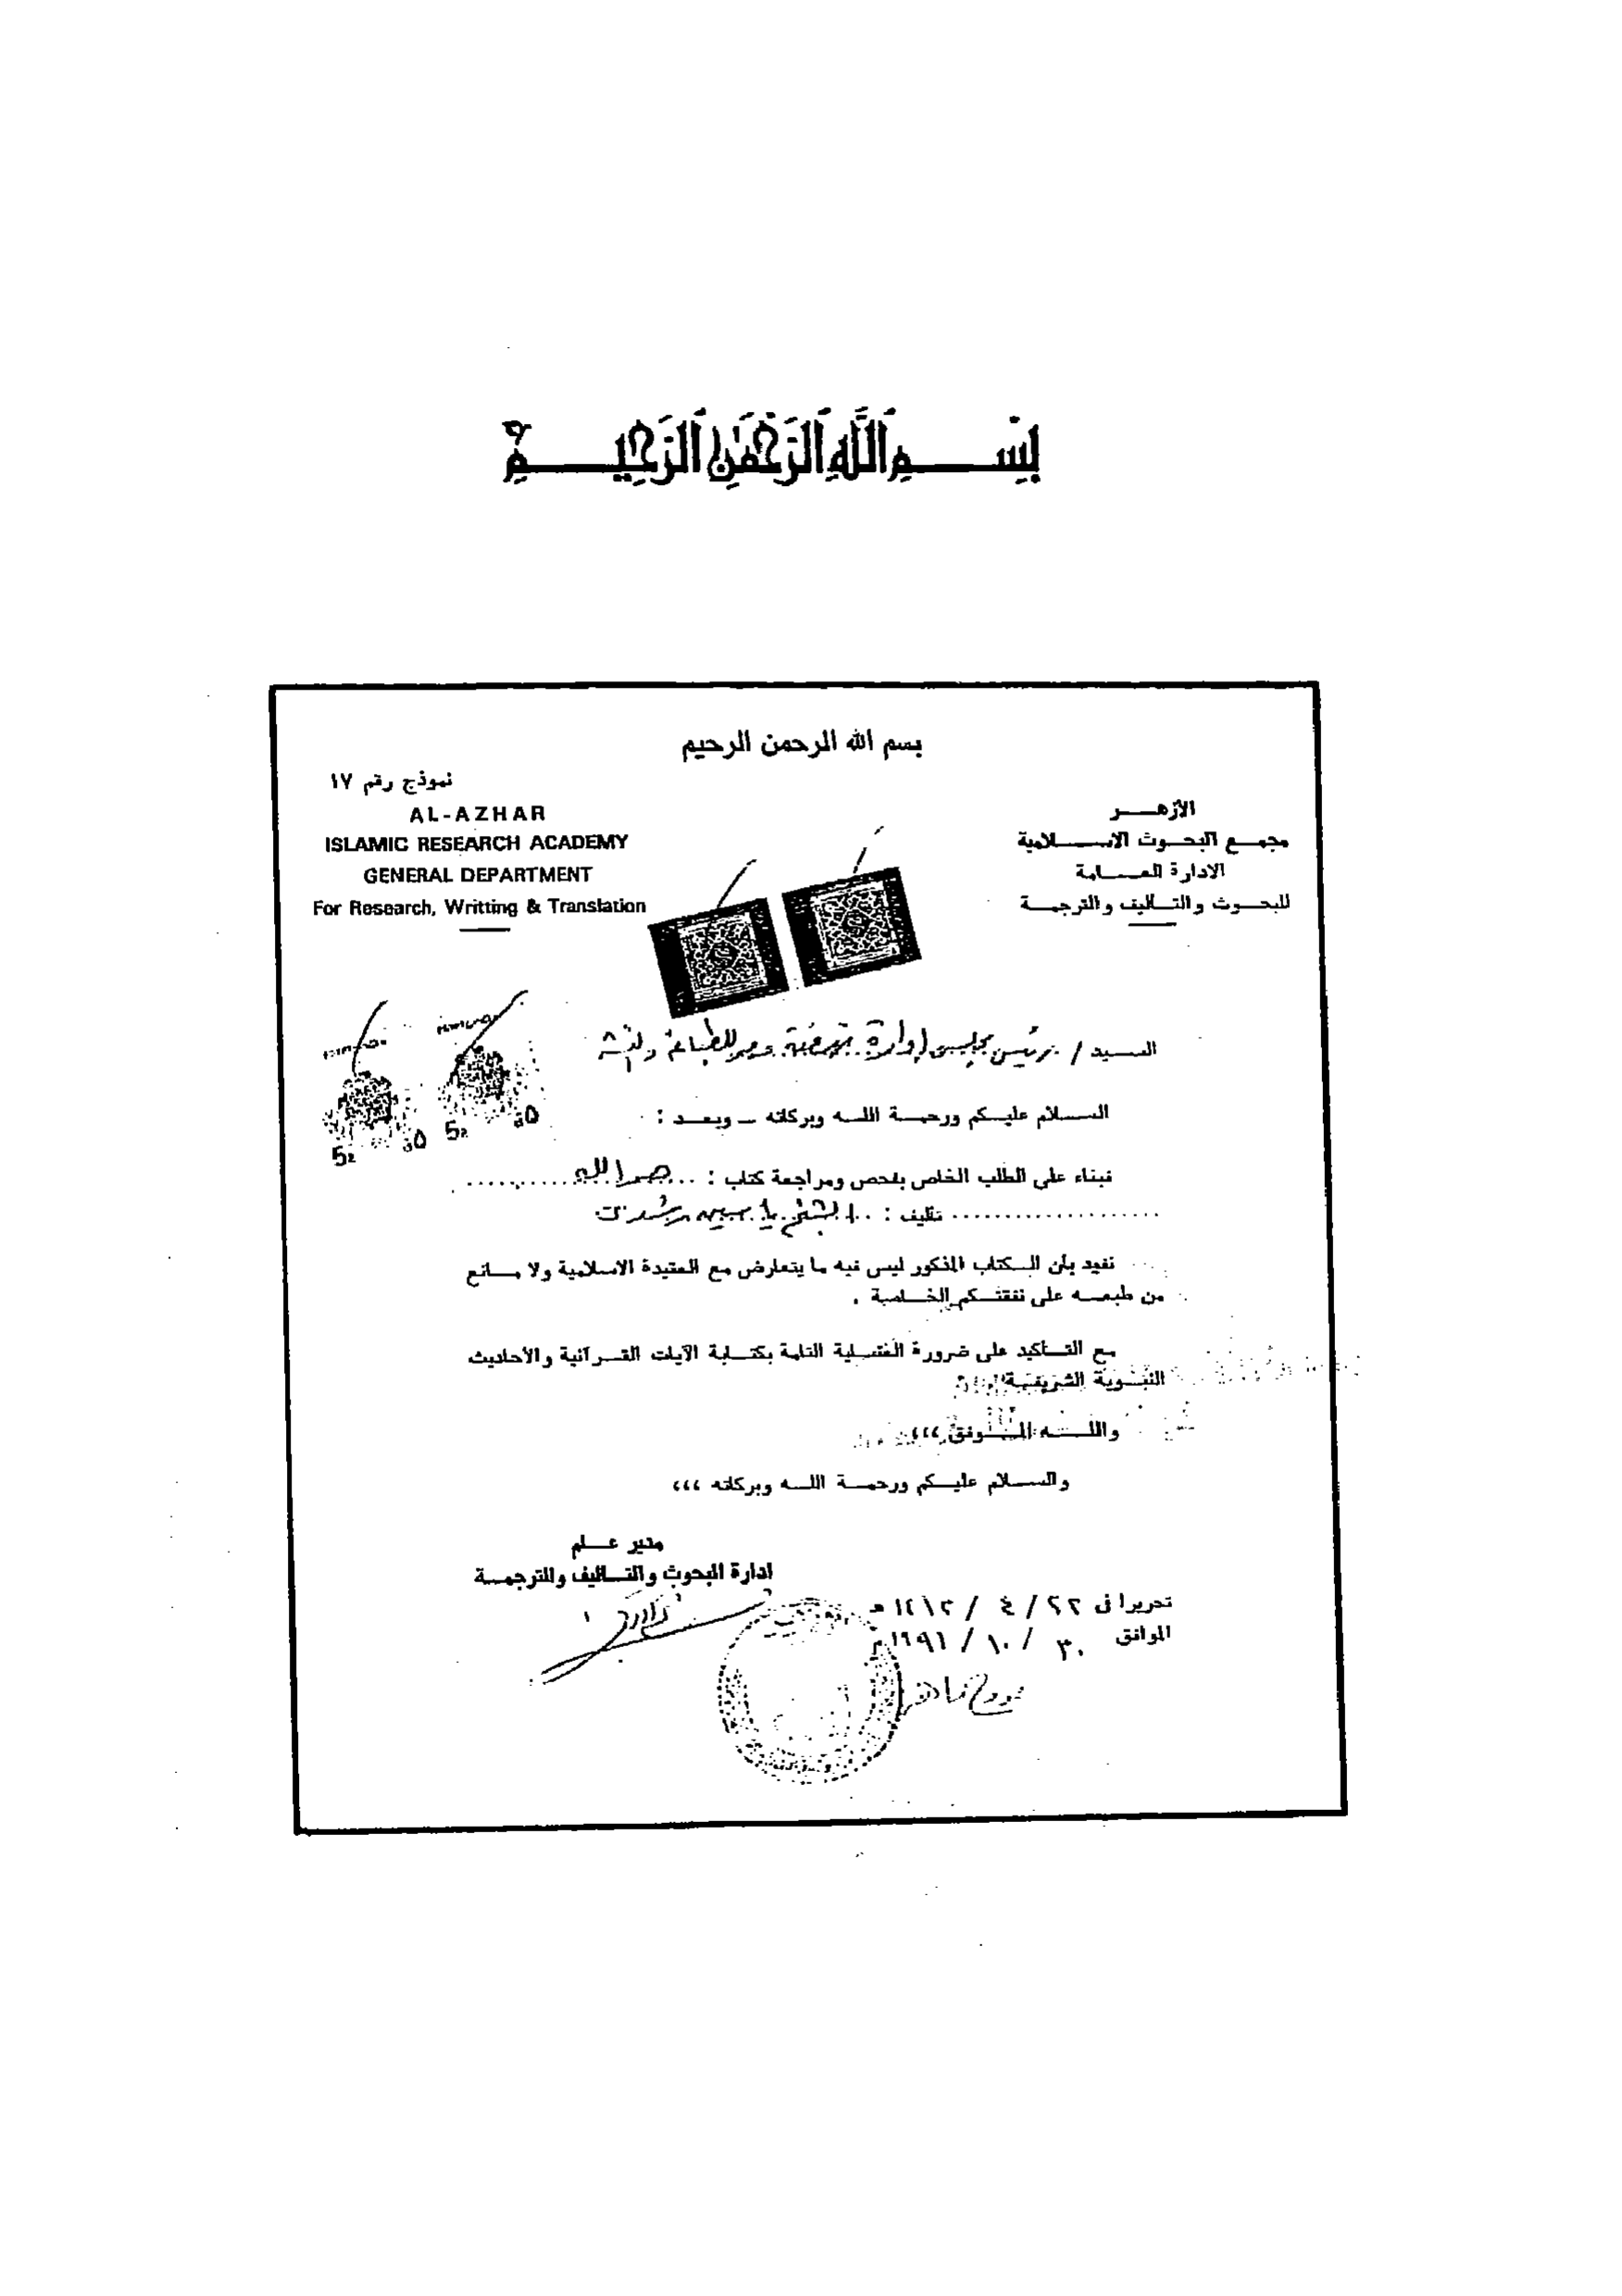 بِسْمِ اللَّهِ الرَّحْمَٰنِ الرَّحِيمِ
بسم الله الرحمن الرحيم
نموذج رقم ١٧
الأزهر
مجمع البحوث الاسلامية
الادارة العامة
للبحوث والتأليف والترجمة
AL-AZHAR
ISLAMIC RESEARCH ACADEMY
GENERAL DEPARTMENT
For Research, Writting & Translation
السيد / رئيس مجلس إدارة نهضة مصر للطباعة والنشر
السلام عليكم ورحمة الله وبركاته – وبعد :
فبناء على الطلب الخاص بفحص ومراجعة كتاب : الله
تأليف : الشيخ ياسين رشدى
نفيد بأن الكتاب المذكور ليس فيه ما يتعارض مع العقيدة الاسلامية ولا مانع
من طبعه على نفقتكم الخاصة .
مع التأكيد على ضرورة العناية التامة بكتابة الآيات القرآنية والأحاديث
النبوية الشريفة
والله الموفق ،،،
والسلام عليكم ورحمة الله وبركاته ،،،
مدير عام
ادارة البحوث والتأليف والترجمة
تحريرا فى ٢٢ / ٤ / ١٤١٢ هـ
الموافق ٣٠ / ١٠ / ١٩٩١ م